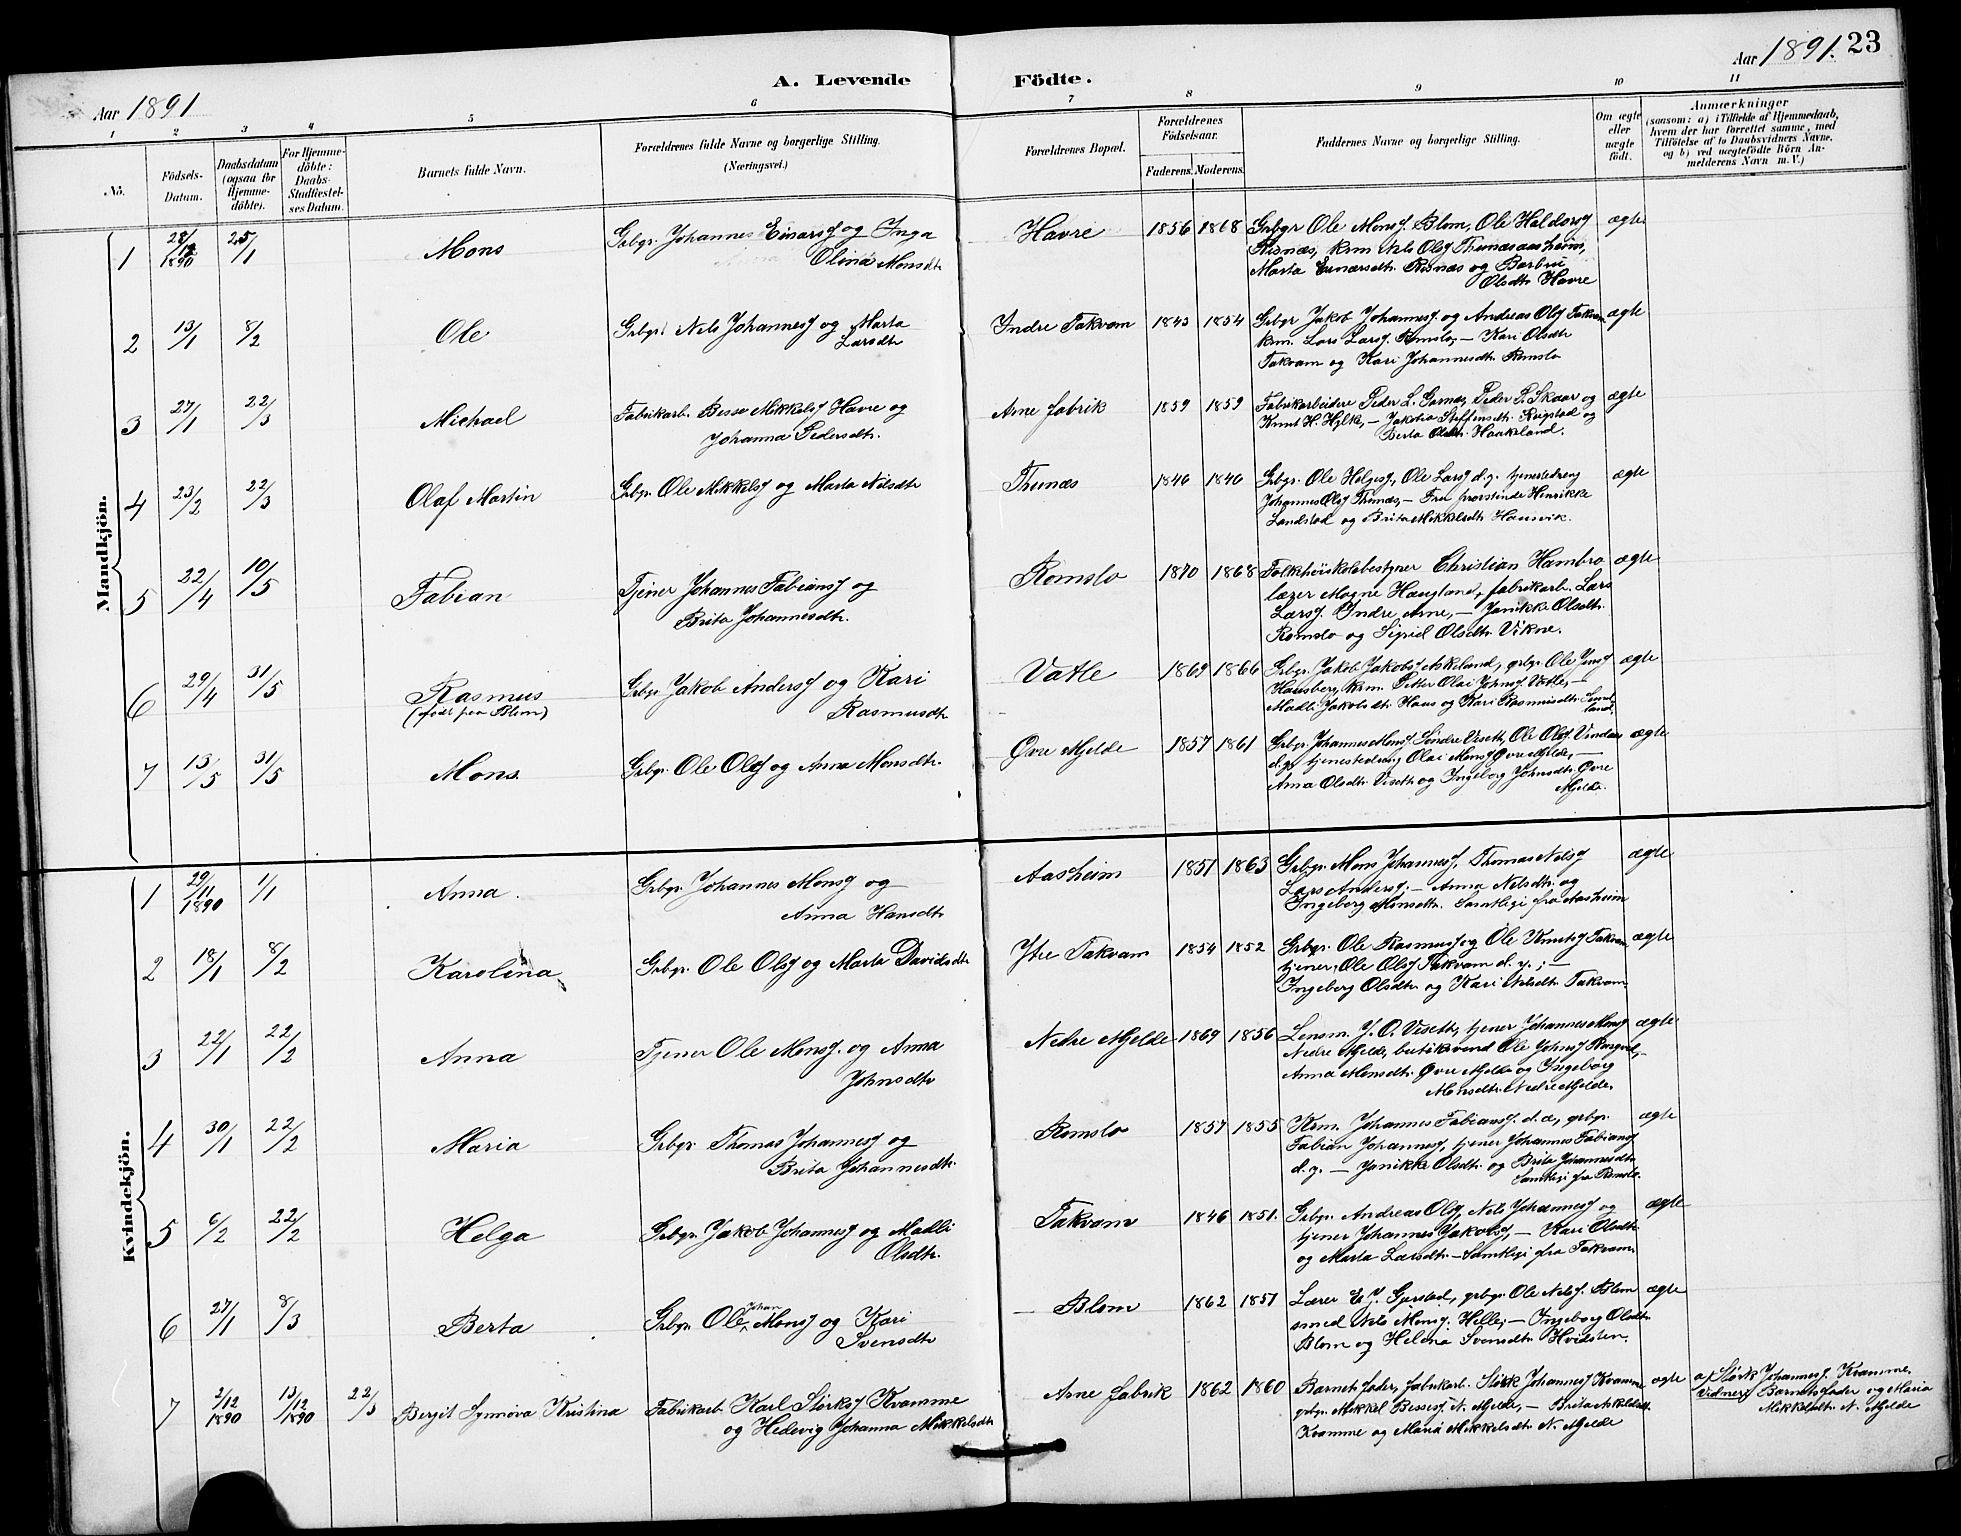 Aar 1891
A. Levende Födte.
Aar 1891. 23
1 2 3 4 5 6 7 8 9 10 11
No.
Födsels-
Datum.
Daabsdatum
(ogsaa for
Hjemme-
döbte).
For Hjemme-
döbte:
Daabs-
Stadfæstel-
ses Datum.
Barnets fulde Navn.
Forældrenes fulde Navne og borgerlige Stilling.
(Næringsvei.)
Forældrenes Bopæl.
Forældrenes
Födselsaar.
Faderens. Moderens.
Faddernes Navne og borgerlige Stilling.
Om ægte
eller
uægte
födt.
Anmærkninger
(saasom: a) i Tilfælde af Hjemmedaab,
hvem der har forrettet samme, med
Tilföielse af to Daabsvidners Navne.
og b) ved uægtefödte Börn An-
melderens Navn m. V.)
Mandkjön.
1 28/12 1890 25/1 Mons
Grbgr. Johannes Einarsf og Inga
Olina Monsdtr
Havre 1856 1868
Grbgr Ole Monsf. Blom, Ole Haldorsf
Risnæs, krm Nels Olsf Thunæsaasheim,
Marta Einarsdtr. Risnæs og Barbru
Olsdtr Havre
ægte
2 13/1 8/2 Ole
Grbgr. Nels Johannesf og Marta
Larsdtr
Indre Takvam 1843 1854
Grbgr Jakob Johannesf og Andreas Olsf Takvam
krm. Lars Larsf. Romslo, — Kari Olsdtr
Takvam og Kari Johannesdtr Romslo
ægte
3 27/1 22/3 Michael
Fabrikarb. Besse Mikkelsf Havre og
Johanna Pedersdtr.
Arne fabrik 1859 1859
Fabrikarbeidere Peder L. Garnæs, Peder P. Skaar og
Knut H. Hylke, — Jakobia Steffensdtr. Reigstad og
Berta Olsdtr. Haukeland.
ægte
4 23/2 22/3 Olaf Martin
Grbgr. Ole Mikkelsf og Marta Nilsdtr
Thunæs 1846 1846
Grbgr. Ole Helgesf., Ole Larsf d.y. tjenestedreng
Johannes Olsf Thunæs, — Fru provstinde Henrikke
Landstad og Brita Mikkelsdtr. Hausvik.
ægte
5 22/4 10/5 Fabian
Tjener Johannes Fabiansf og
Brita Johannesdtr.
Romslo 1870 1868
Folkehöiskolebestyrer Christian Hambro
lærer Mogne Haugland, fabrikarb. Lars
Larsf. Indre Arne, — Janikke Olsdtr.
Romslo og Sigrid Olsdtr. Vikne.
ægte
6 29/4 31/5 Rasmus
(födt paa Blom)
Grbgr. Jakob Andersf og Kari
Rasmusdtr
Vatle 1869 1866
Grbgr. Jakob Jakobsf Askeland, grbgr. Ole Jensf
Hausberg, krm. Petter Olai Johnsf Vatle, —
Madli Jakobsdtr. Haus og Kari Rasmusdtr.
ægte
7 13/5 31/5 Mons
Grbgr. Ole Olsf og Anna Monsdtr.
Øvre Mjelde 1857 1861
Grbgr. Johannes Monsf. Söndre Viseth, Ole Olsf Vindæs
d.y. tjenestedreng Olai Monsf Øvre Mjelde, —
Anna Olsdtr. Viseth og Ingeborg Johnsdtr. Øvre
Mjelde.
ægte
Kvindekjön.
1 29/11 1890 1/1 Anna.
Grbgr. Johannes Monsf og
Anna Hansdtr
Aasheim 1851 1863
Grbgr. Mons Johannesf, Thomas Nelsf
Lars Andersf. — Anna Nelsdtr. og
Ingeborg Monsdtr. Samtlige fra Aasheim
ægte
2 18/1 8/2 Karolina
Grbgr. Ole Olsf og Marta Davidsdtr
Ytre Takvam 1854 1852
Grbgr. Ole Rasmusf og Ole Knutsf Takvam
tjener, Ole Olsf Takvam d.y.; —
Ingeborg Olsdtr. og Kari Nelsdtr Takvam.
ægte
3 22/1 22/2 Anna
Tjener Ole Monsf. og Anna
Johnsdtr
Nedre Mjelde 1869 1856
Lensm. J. O. Viseth, tjener Johannes Monsf
Nedre Mjelde, Ole Johnsf
Anna Monsdtr. Øvre Mjelde og Ingeborg
Monsdtr. Nedre Mjelde.
ægte
4 30/1 22/2 Maria
Grbgr. Thomas Johannesf og
Brita Johannesdtr.
Romslo 1857 1855
Krm. Johannes Fabiansf. d.æ, grbgr.
Fabian Johannesf, tjener Johannes Fabiansf
d.y. — Janikke Olsdtr. og Brita Johannesdtr.
Samtlige fra Romslo.
ægte
5 6/2 22/2 Helga
Grbgr. Jakob Johannesf og Madli
Olsdtr.
Takvam 1846 1851.
Grbgr. Andreas Olsf, Nels Johannesf og
tjener Johannes Jakobsf, — Kari Olsdtr.
og Marta Larsdtr. — Samtlige fra Takvam.
ægte
6 27/1 8/3 Berta
Grbgr. Ole Johan Monsf og Kari
Svensdtr
Blom 1862 1857
Lærer E. J. Gjerstad, grbgr. Ole Nelsf. Blom
smed Nels Monsf. Helle, — Ingeborg Olsdtr.
Blom og Helena Svensdtr. Hvidsten.
ægte
7 2/12 1890 13/12 1890 22/3 Bergit Synnöva Kristina
Fabrikarb. Karl Störksf Kvamme
og Hedevig Johanna Mikkelsdtr.
Arne fabrik 1862 1860
Barnets fader, fabrikarb. Störk Johannesf Kvamme
grbgr. Mikkel Bessesf. N. Mjelde, — Brita Askelsdtr.
Kvamme og Maria Mikkelsdtr. N. Mjelde
ægte
a/ Störk Johannesf. Kvamme.
Vidner: Barnets fader og Maria
Mikkelsdtr. N. Mjelde